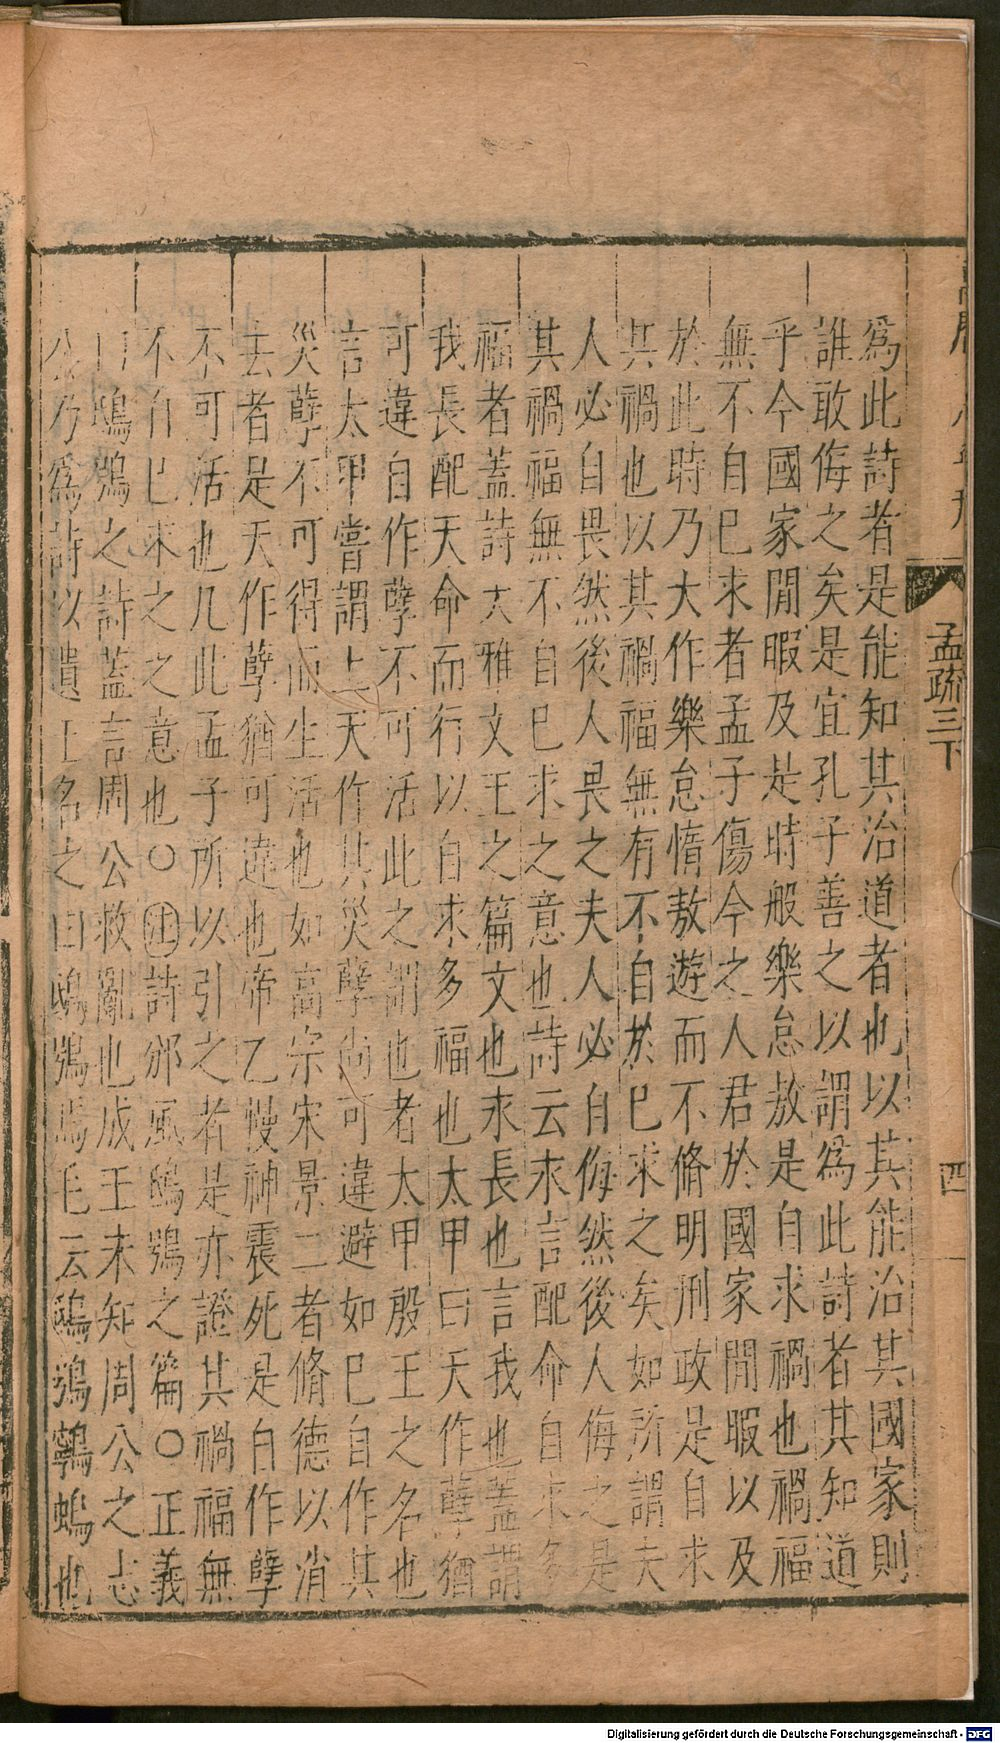 孟疏三下
四
爲此詩者是能知其治道者也以其能治其國家則
誰敢侮之矣是宜孔子善之以謂爲此詩者其知道
乎今國家閒暇及是時般樂怠敖是自求禍也禍福
無不自已求者孟子傷今之人君於國家閒暇以及
於此時乃大作樂怠惰敖遊而不脩明刑政是自求
其禍也以其禍福無有不自於已求之矣如所謂夫
人必自畏然後人畏之夫人必自侮然後人侮之是
其禍福無不自已求之意也詩云永言配命自求多
福者蓋詩大雅文王之篇文也永長也言我也蓋謂
我長配天命而行以自求多福也太甲曰天作孽猶
可違自作孽不可活此之謂也者太甲殷王之名也
言太甲嘗謂上天作其災孽尚可違避如已自作其
災孽不可得而生活也如高宗宋景二者脩德以消
去者是天作孽猶可違也帝乙慢神震死是自作孽
不可活也凡此孟子所以引之者是亦證其禍福無
不自已求之之意也○注詩邠風鴟鴞之篇○正義
曰鴟鴞之詩蓋言周公救亂也成王未知周公之志
公乃爲詩以遺王名之曰鴟鴞焉毛云鴟鴞鸋鴂也
Digitalisierung gefördert durch die Deutsche Forschungsgemeinschaft - DFG